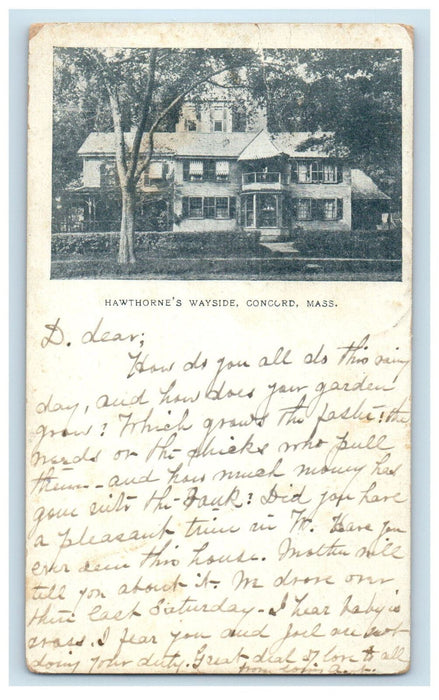 HAWTHORNE'S WAYSIDE, CONCORD, MASS.
D. dear;
How do you all do this rainy
day, and how does your garden
grow? Which grows the faster: the
weeds or the chicks who pull
them - and how much money has
gone into the bank? Did you have
a pleasant time in W. Have you
ever seen this house. Mother will
tell you about it. We drove over
there last Saturday - I hear baby is
cross. I fear you and Joel are not
doing your duty. Great deal of love to all
from loving Aunt